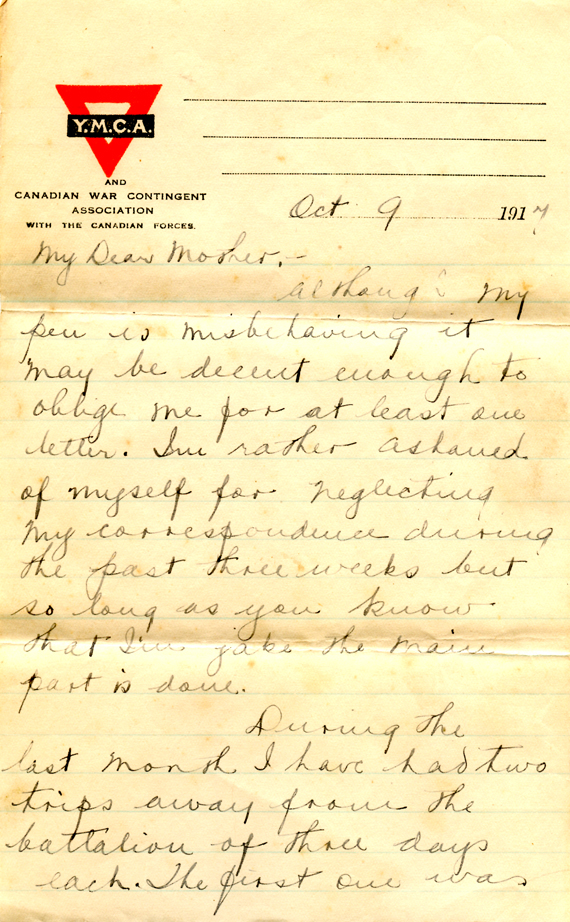 Y.M.C.A.
AND
CANADIAN WAR CONTINGENT
ASSOCIATION
WITH THE CANADIAN FORCES.
Oct 9 1917
My Dear Mother,-
Although my
pen is misbehaving it
may be decent enough to
oblige me for at least one
letter. I'm rather ashamed
of myself for neglecting
my correspondence during
the past three weeks but
so long as you know
that I'm jake the main
part is done.
During the
last month I have had two
trips away from the
battalion of three days
each. The first one was